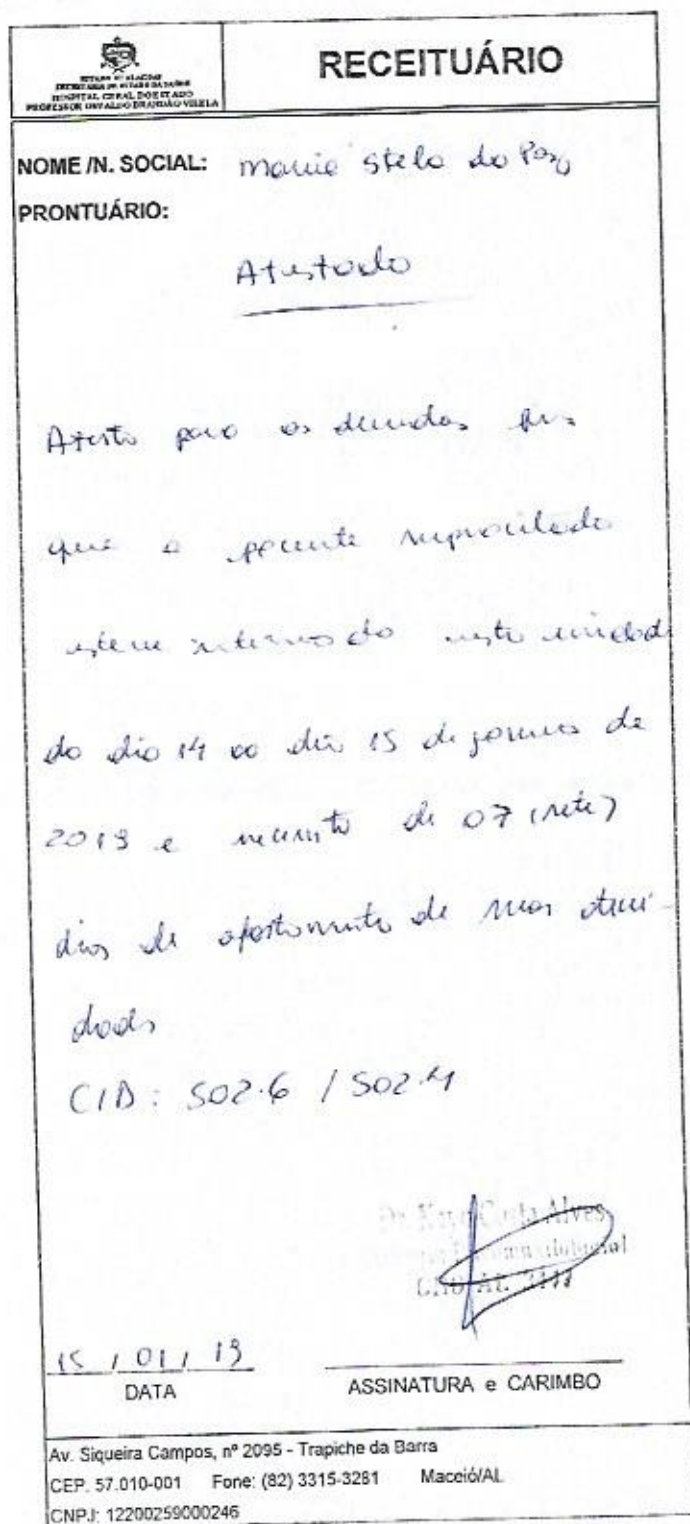 ESTADO DE ALAGOAS
SECRETARIA DE ESTADO DA SAÚDE
HOSPITAL GERAL DO ESTADO
PROFESSOR OSVALDO BRANDÃO VILELA
RECEITUÁRIO
NOME /N. SOCIAL: Maria Stela da Paz
PRONTUÁRIO:
Atestado
Atesto para os devidos fins
que a paciente supracitada
esteve internada nesta unidade
do dia 14 ao dia 15 de janeiro de
2019 e necessita de 07 (sete)
dias de afastamento de suas ativi-
dades
CID: S02.6 / S02.4
Dr. Costa Alves
15 / 01 / 19
DATA
ASSINATURA e CARIMBO
Av. Siqueira Campos, nº 2095 - Trapiche da Barra
CEP. 57.010-001 Fone: (82) 3315-3281 Maceió/AL
CNPJ: 12200259000246